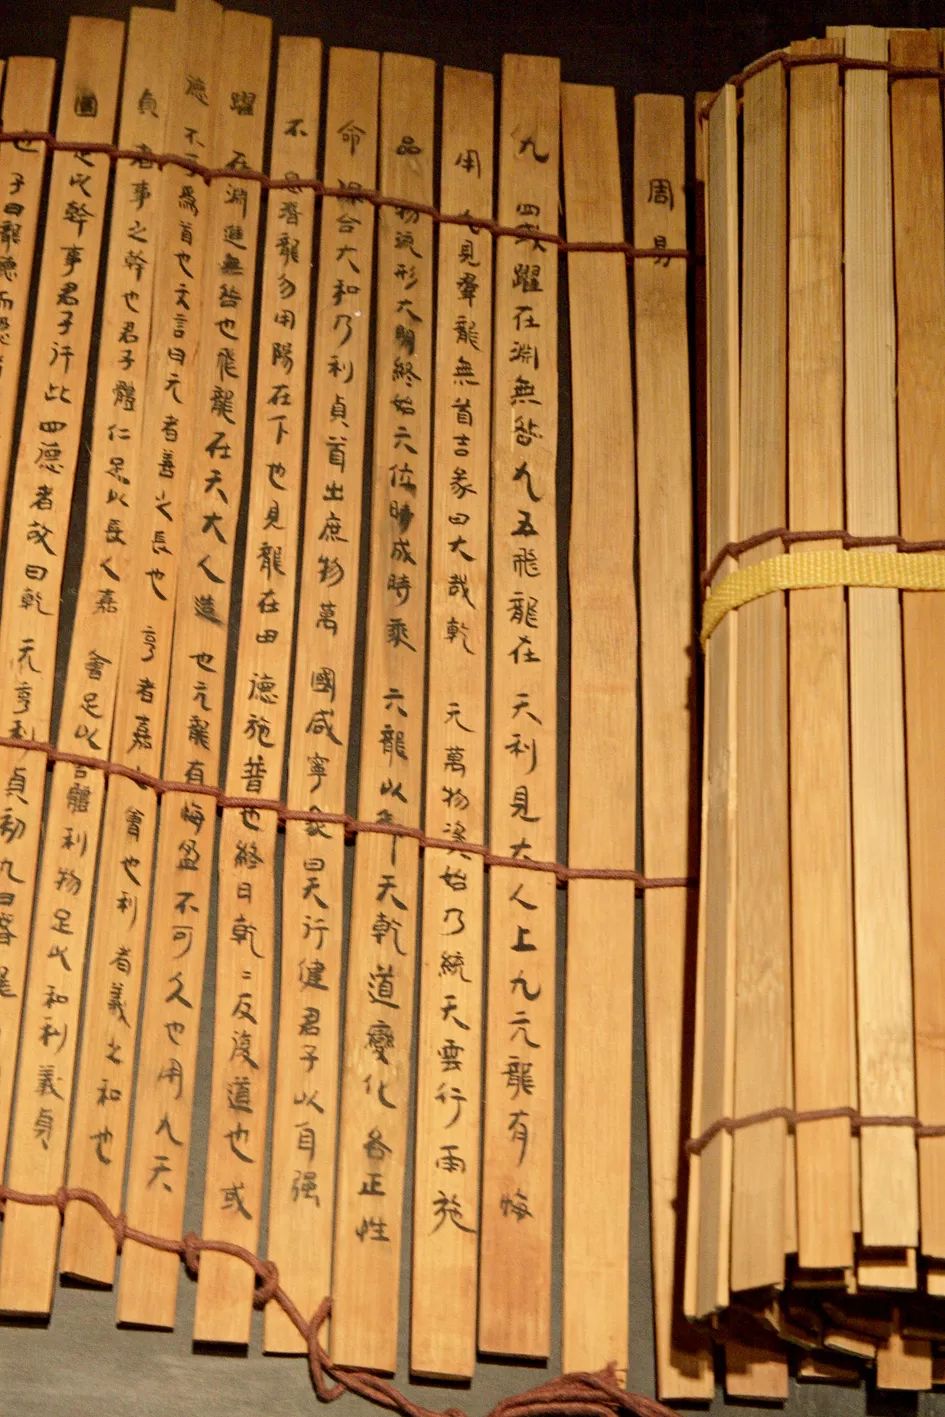 周易
九四或躍在淵無咎九五飛龍在天利見大人上九元龍有悔
用九見羣龍無首吉彖曰大哉乾元萬物資始乃統天雲行雨施
品物流形大明終始六位時成時乘六龍以御天乾道變化各正性
命保合大和乃利貞首出庶物萬國咸寧象曰天行健君子以自强
不息潛龍勿用陽在下也見龍在田德施普也終日乾〻反復道也或
躍在淵進無咎也飛龍在天大人造也元龍有悔盈不可久也用九天
德不可爲首也文言曰元者善之長也亨者嘉之會也利者義之和也
貞者事之幹也君子體仁足以長人嘉會足以合體利物足以和利義貞
固足以幹事君子行此四德者故曰乾元亨利貞初九曰潛龍
也子曰龍德而隱者